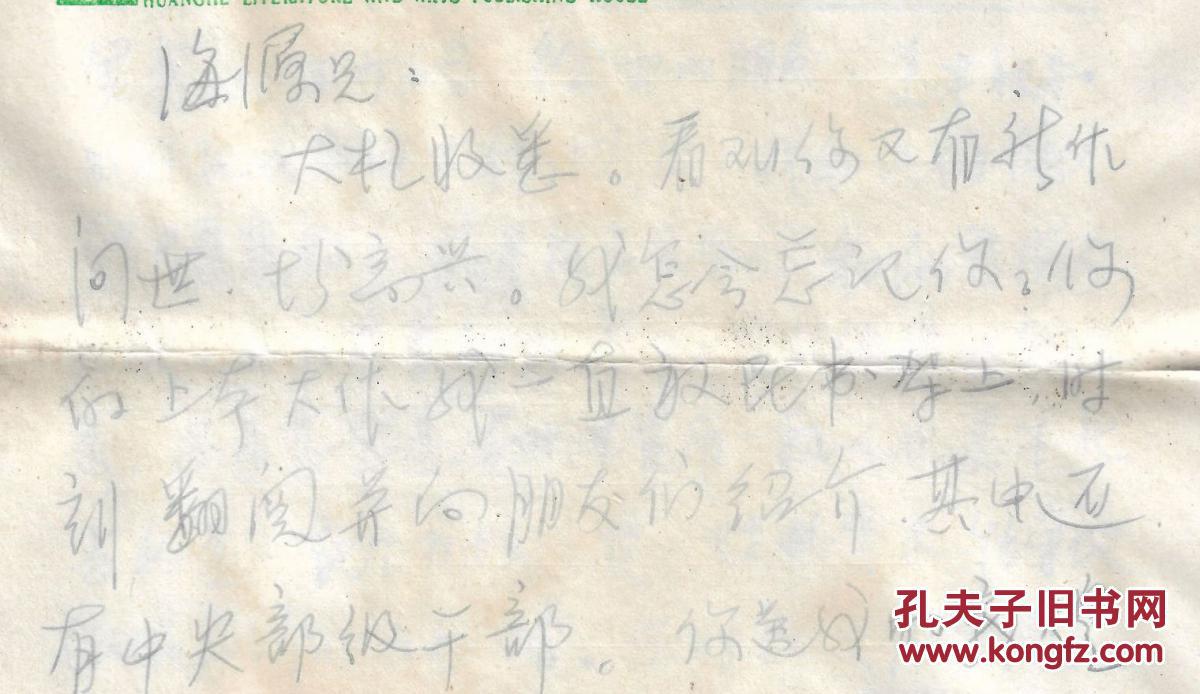 HUANGHE LITERATURE AND ARTS PUBLISHING HOUSE
海源兄：
大札收悉。看到你又有新作
问世，十分高兴。我怎会忘记你？你
的上本大作我一直放在书架上，时
刻翻阅并向朋友们绍介，其中还
有中央部级干部。你送我的
孔夫子旧书网
www.kongfz.com